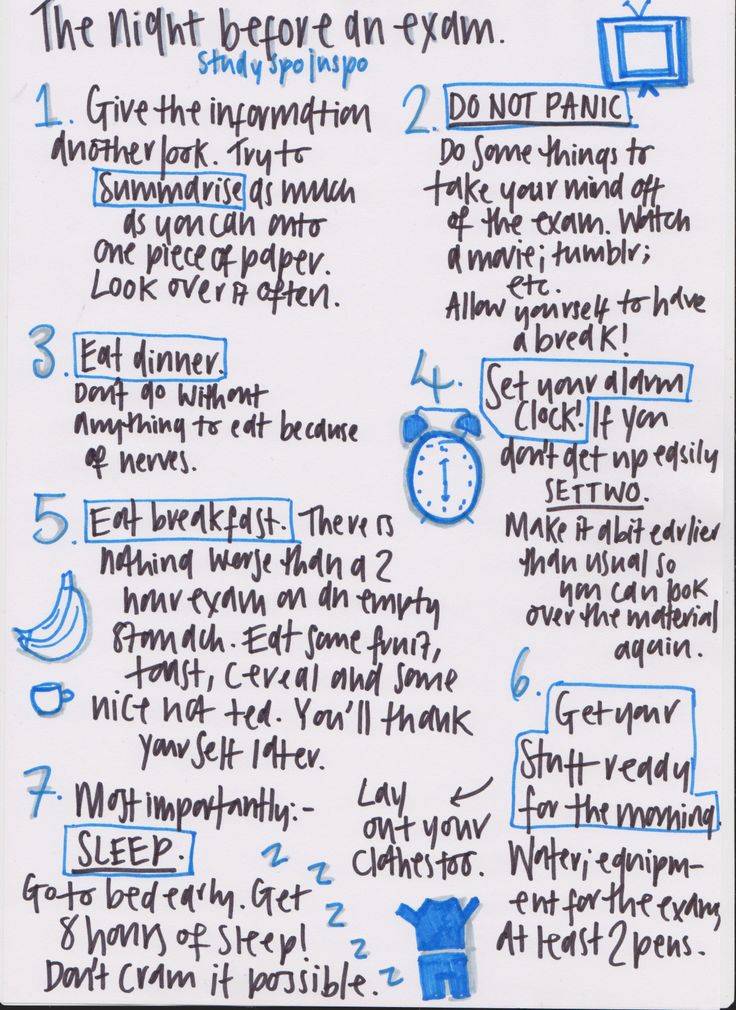 The night before an exam.
studyspoinspo
1. Give the information
another look. Try to
Summarise as much
as you can onto
one piece of paper.
Look over it often.
2. DO NOT PANIC.
Do some things to
take your mind off
of the exam. Watch
a movie; tumblr;
etc.
Allow yourself to have
a break!
3. Eat dinner.
Don't go without
anything to eat because
of nerves.
4. Set your alarm
clock! If you
don't get up easily
SET TWO.
Make it a bit earlier
than usual so
you can look
over the material
again.
5. Eat breakfast. There is
nothing worse than a 2
hour exam on an empty
stomach. Eat some fruit,
toast, cereal and some
nice hot tea. You'll thank
yourself later.
6. Get your
stuff ready
for the morning
Water; equipm-
ent for the exam,
At least 2 pens.
Lay
out your
clothes too.
7. Most importantly:-
SLEEP.
Go to bed early. Get
8 hours of sleep!
Don't cram if possible.
z
z
z
z
z